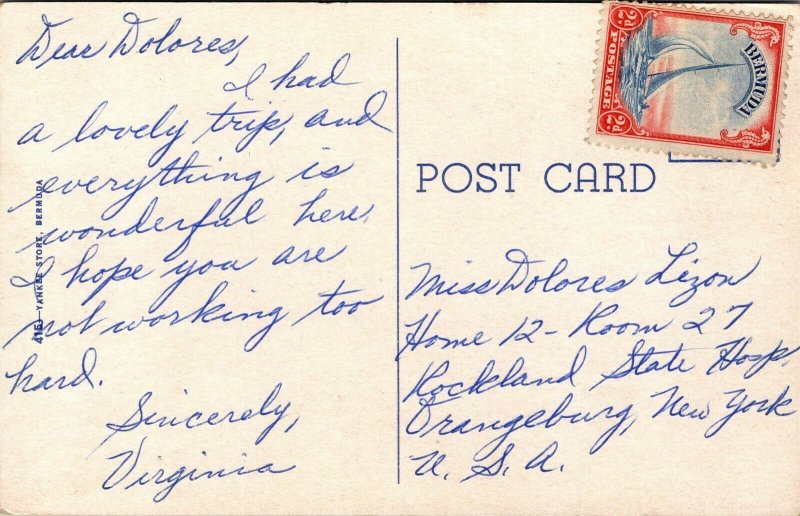 Dear Dolores,
I had
a lovely trip, and
everything is
wonderful here.
I hope you are
not working too
hard.
Sincerely,
Virginia
4151—YANKEE STORE, BERMUDA
POST CARD
2d. POSTAGE 2d.
BERMUDA
Miss Dolores Lizon
Home 12 - Room 27
Rockland State Hosp.
Orangeburg, New York
U. S. A.